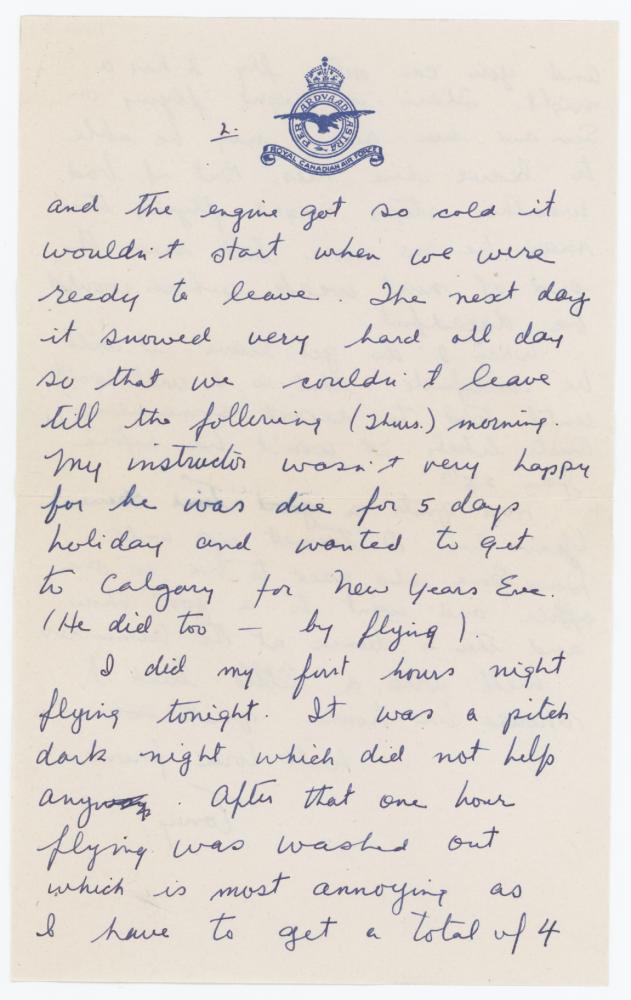 2.
PER ARDVA AD ASTRA
ROYAL CANADIAN AIR FORCE
and the engine got so cold it
wouldn't start when we were
ready to leave. The next day
it snowed very hard all day
so that we couldn't leave
till the following (Thurs.) morning.
My instructor wasn't very happy
for he was due for 5 days
holiday and wanted to get
to Calgary for New Years Eve.
(He did too — by flying)
I did my first hours night
flying tonight. It was a pitch
dark night which did not help
any. After that one hour
flying was washed out
which is most annoying as
I have to get a total of 4